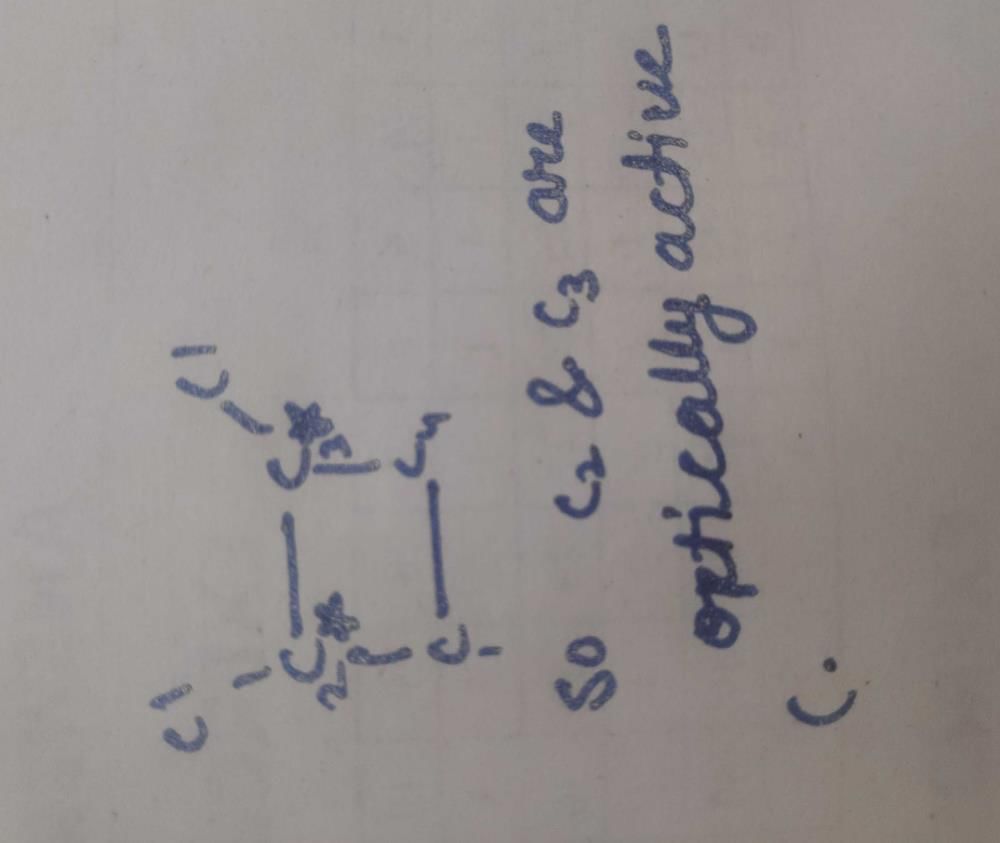 Cl Cl
C₂* — C₃*
C₁ — C₄
So C₂ & C₃ are
optically active
C.